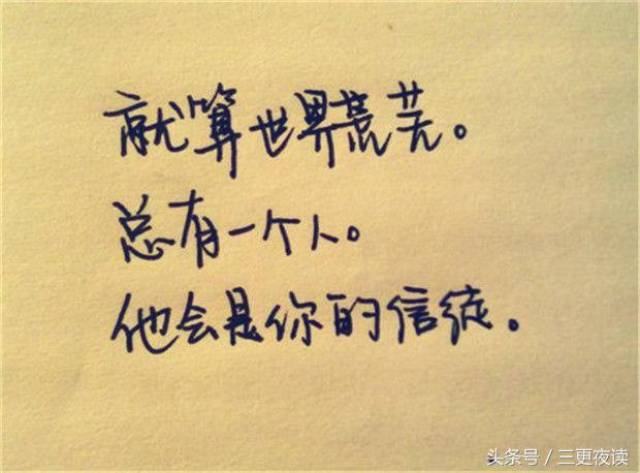 就算世界荒芜。
总有一个人。
他会是你的信徒。
头条号／三更夜读